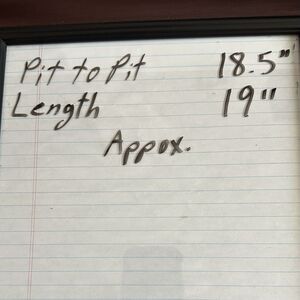 Pit to Pit 18.5"
Length 19"
Appox.